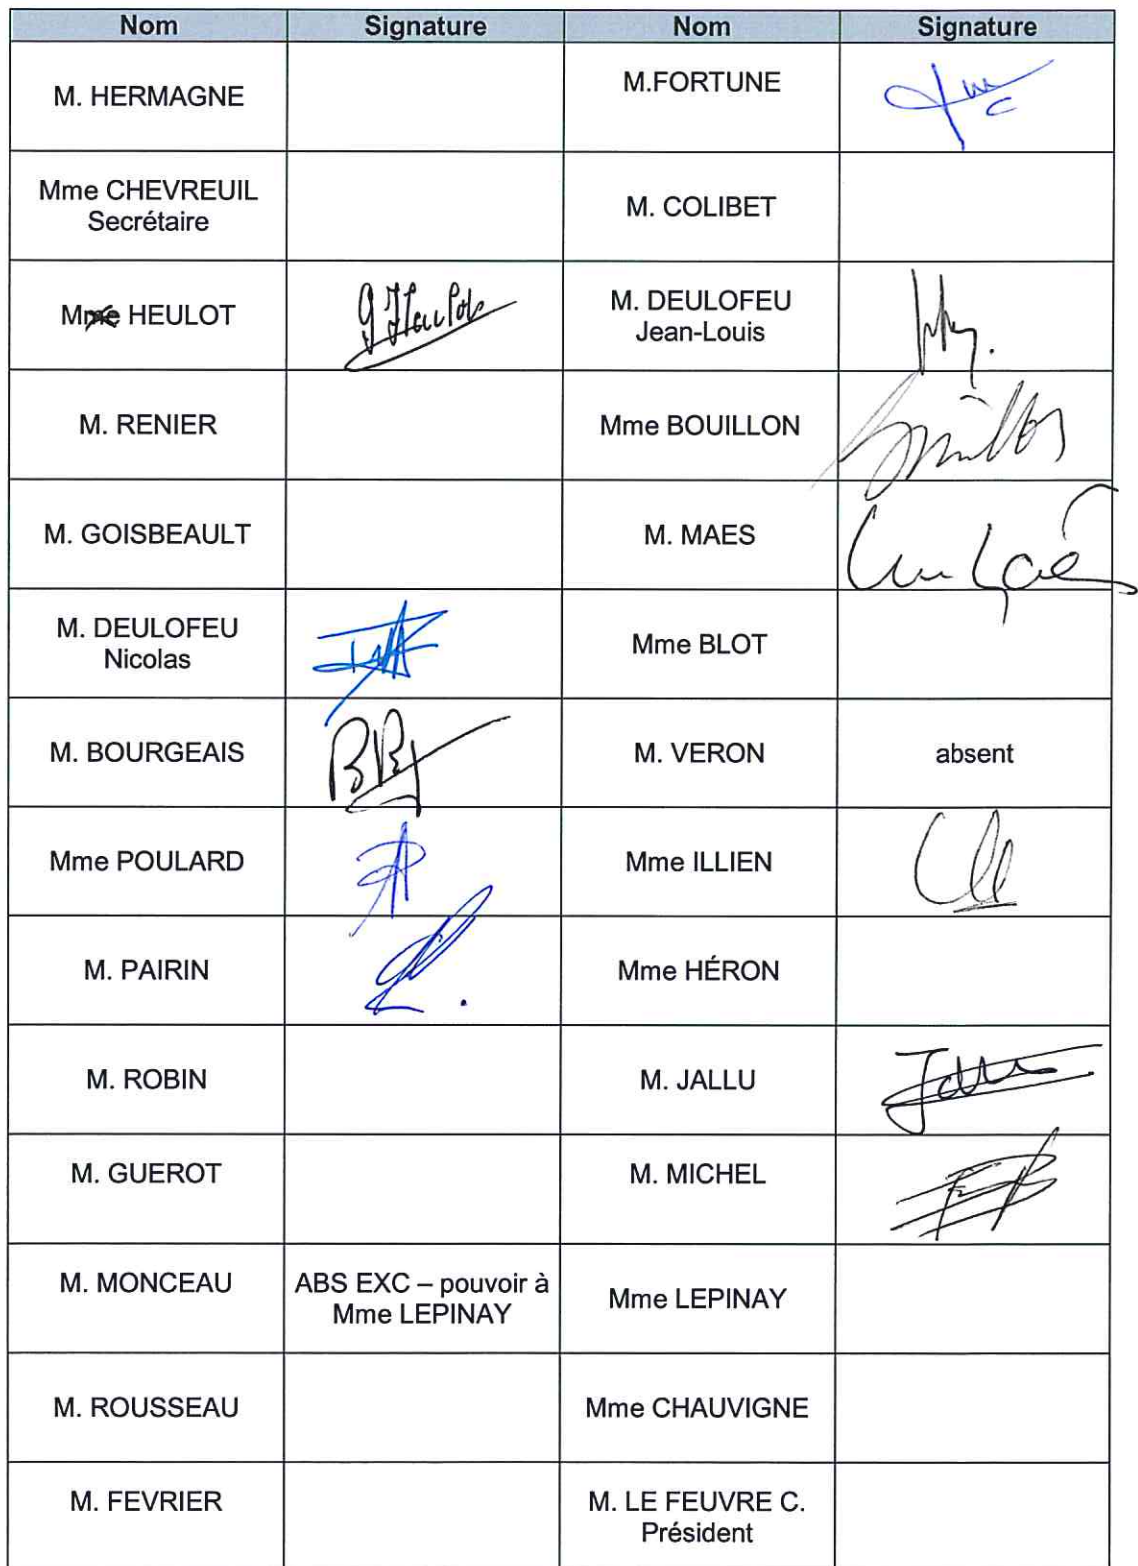 Nom Signature Nom Signature
M. HERMAGNE
M.FORTUNE
Mme CHEVREUIL
Secrétaire
M. COLIBET
M HEULOT
G Heulot
M. DEULOFEU
Jean-Louis
M. RENIER
Mme BOUILLON
M. GOISBEAULT
M. MAES
M. DEULOFEU
Nicolas
Mme BLOT
M. BOURGEAIS
M. VERON
absent
Mme POULARD
Mme ILLIEN
M. PAIRIN
Mme HÉRON
M. ROBIN
M. JALLU
M. GUEROT
M. MICHEL
M. MONCEAU
ABS EXC – pouvoir à
Mme LEPINAY
Mme LEPINAY
M. ROUSSEAU
Mme CHAUVIGNE
M. FEVRIER
M. LE FEUVRE C.
Président